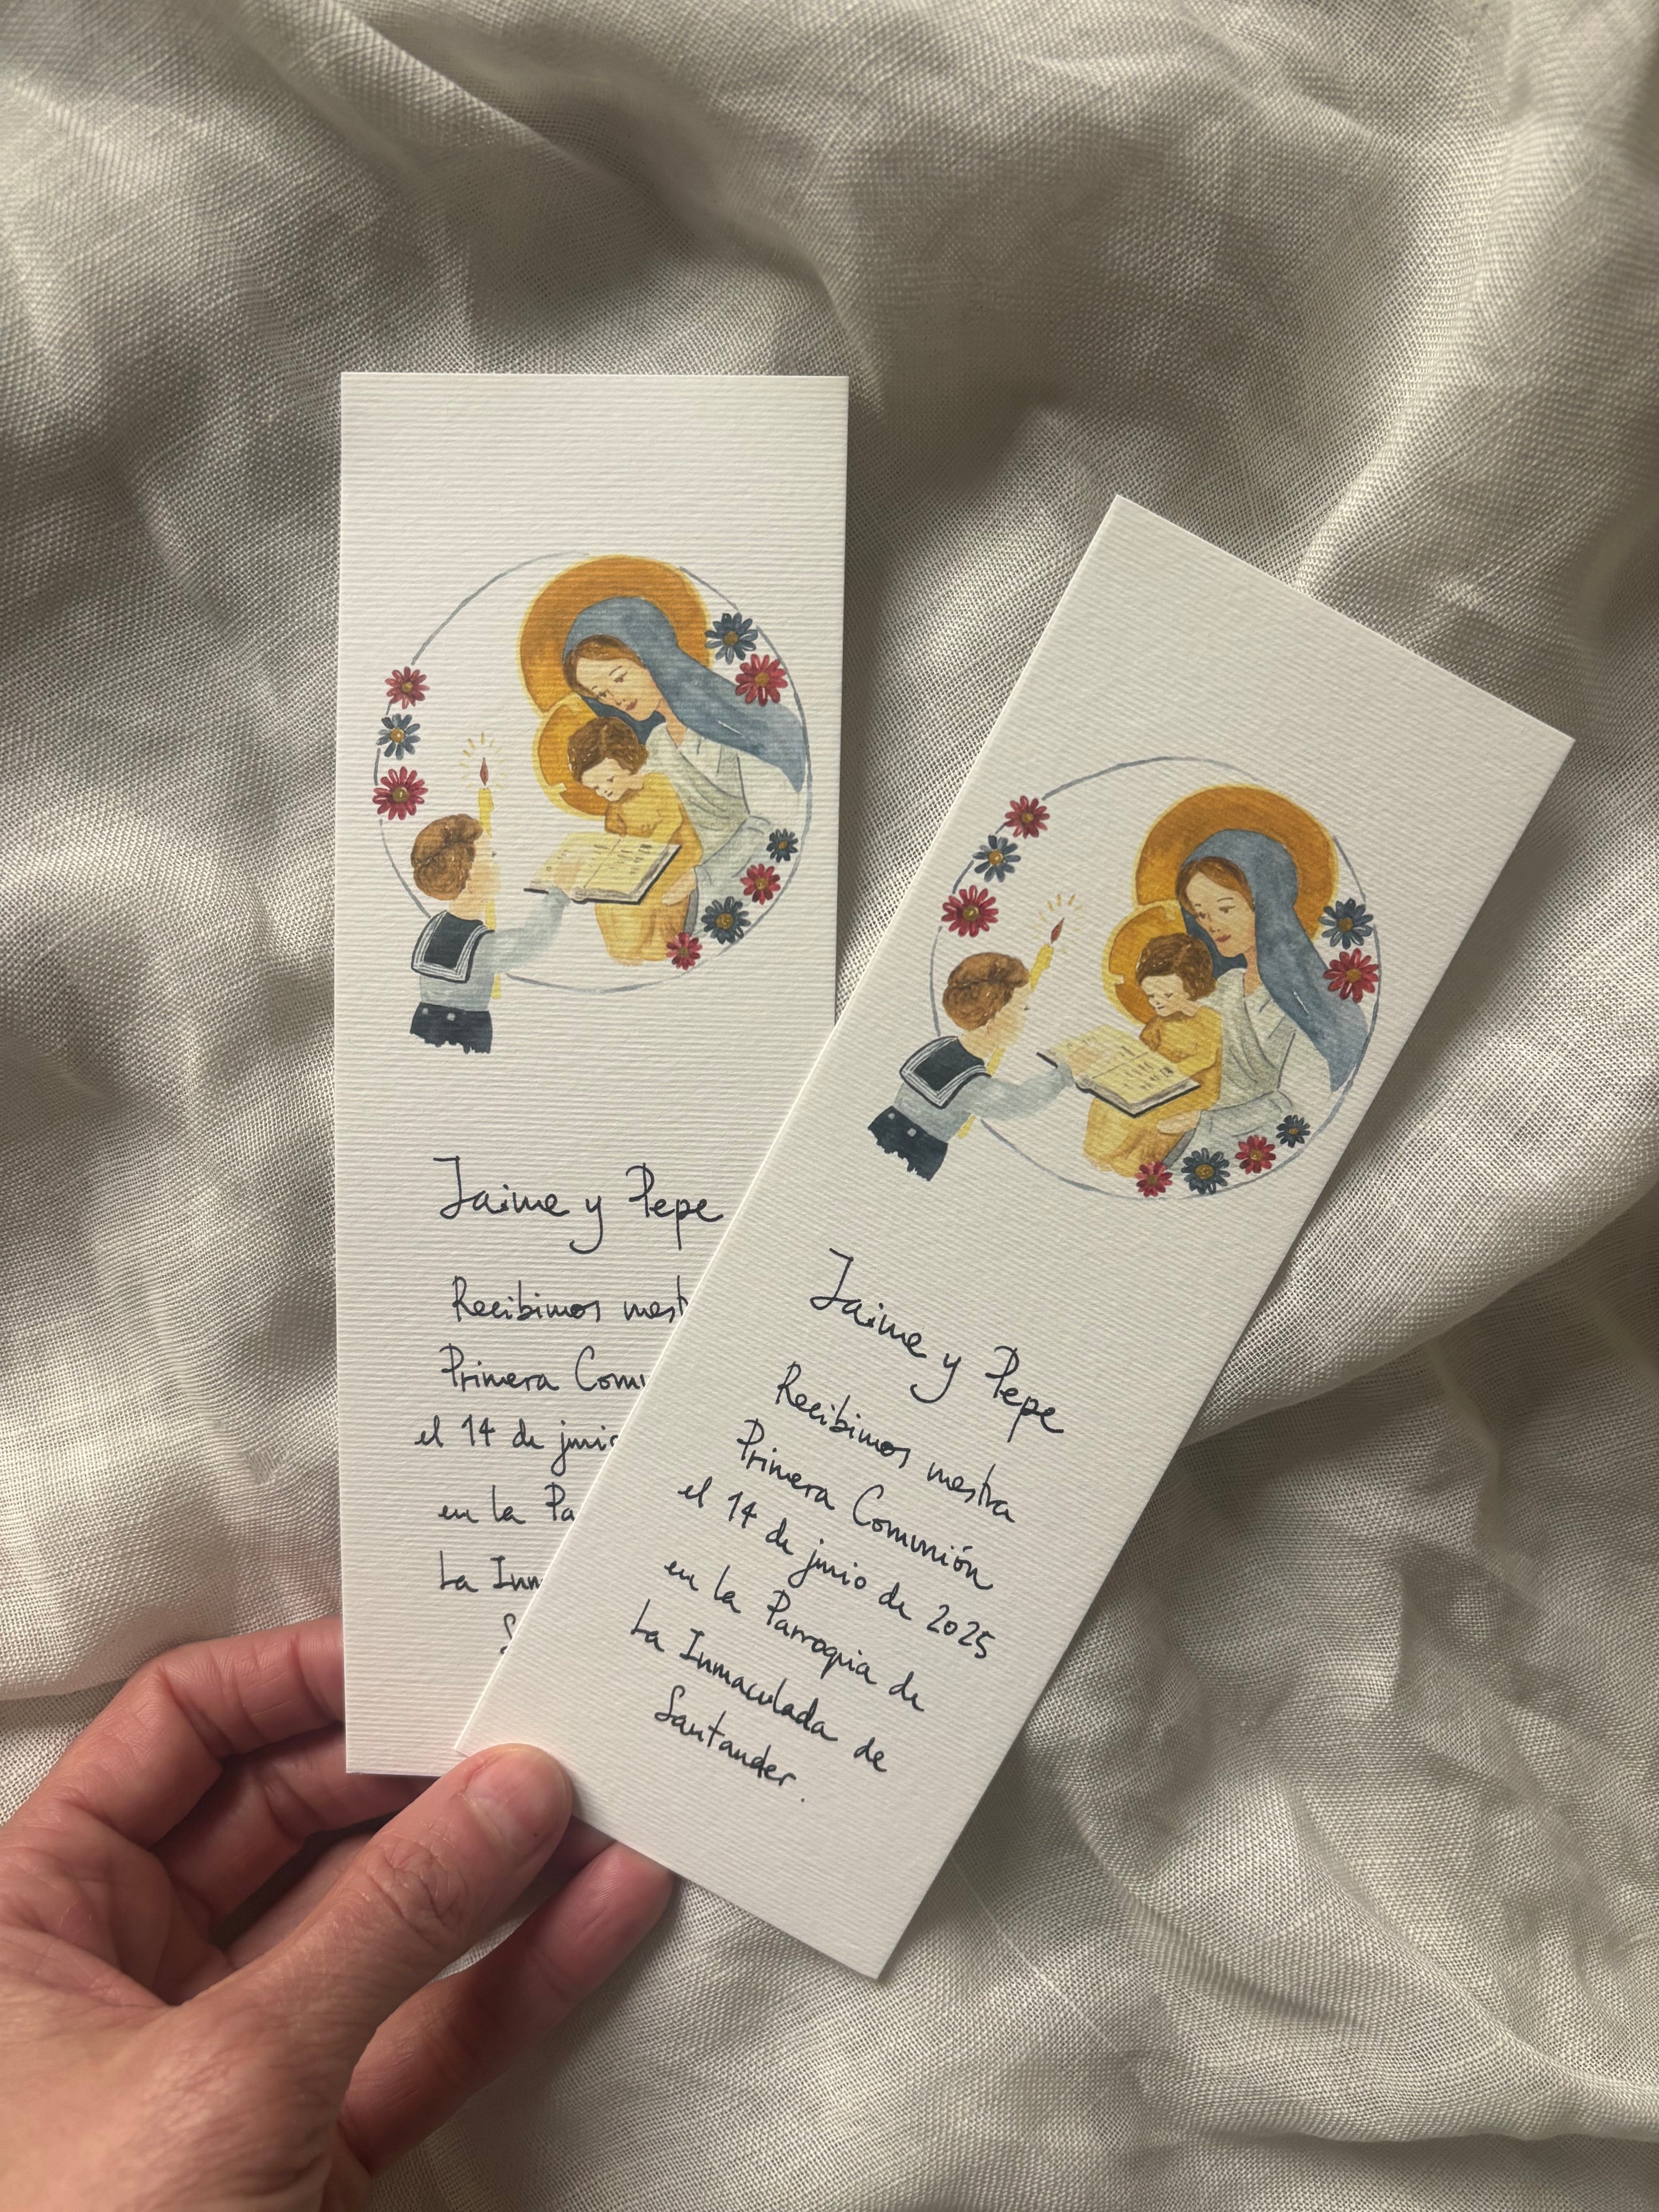 Jaime y Pepe
Recibimos nuest
Primera Comu
el 14 de junio
en la Pa
La Inm
S
Jaime y Pepe
Recibimos nuestra
Primera Comunión
el 14 de junio de 2025
en la Parroquia de
La Inmaculada de
Santander.